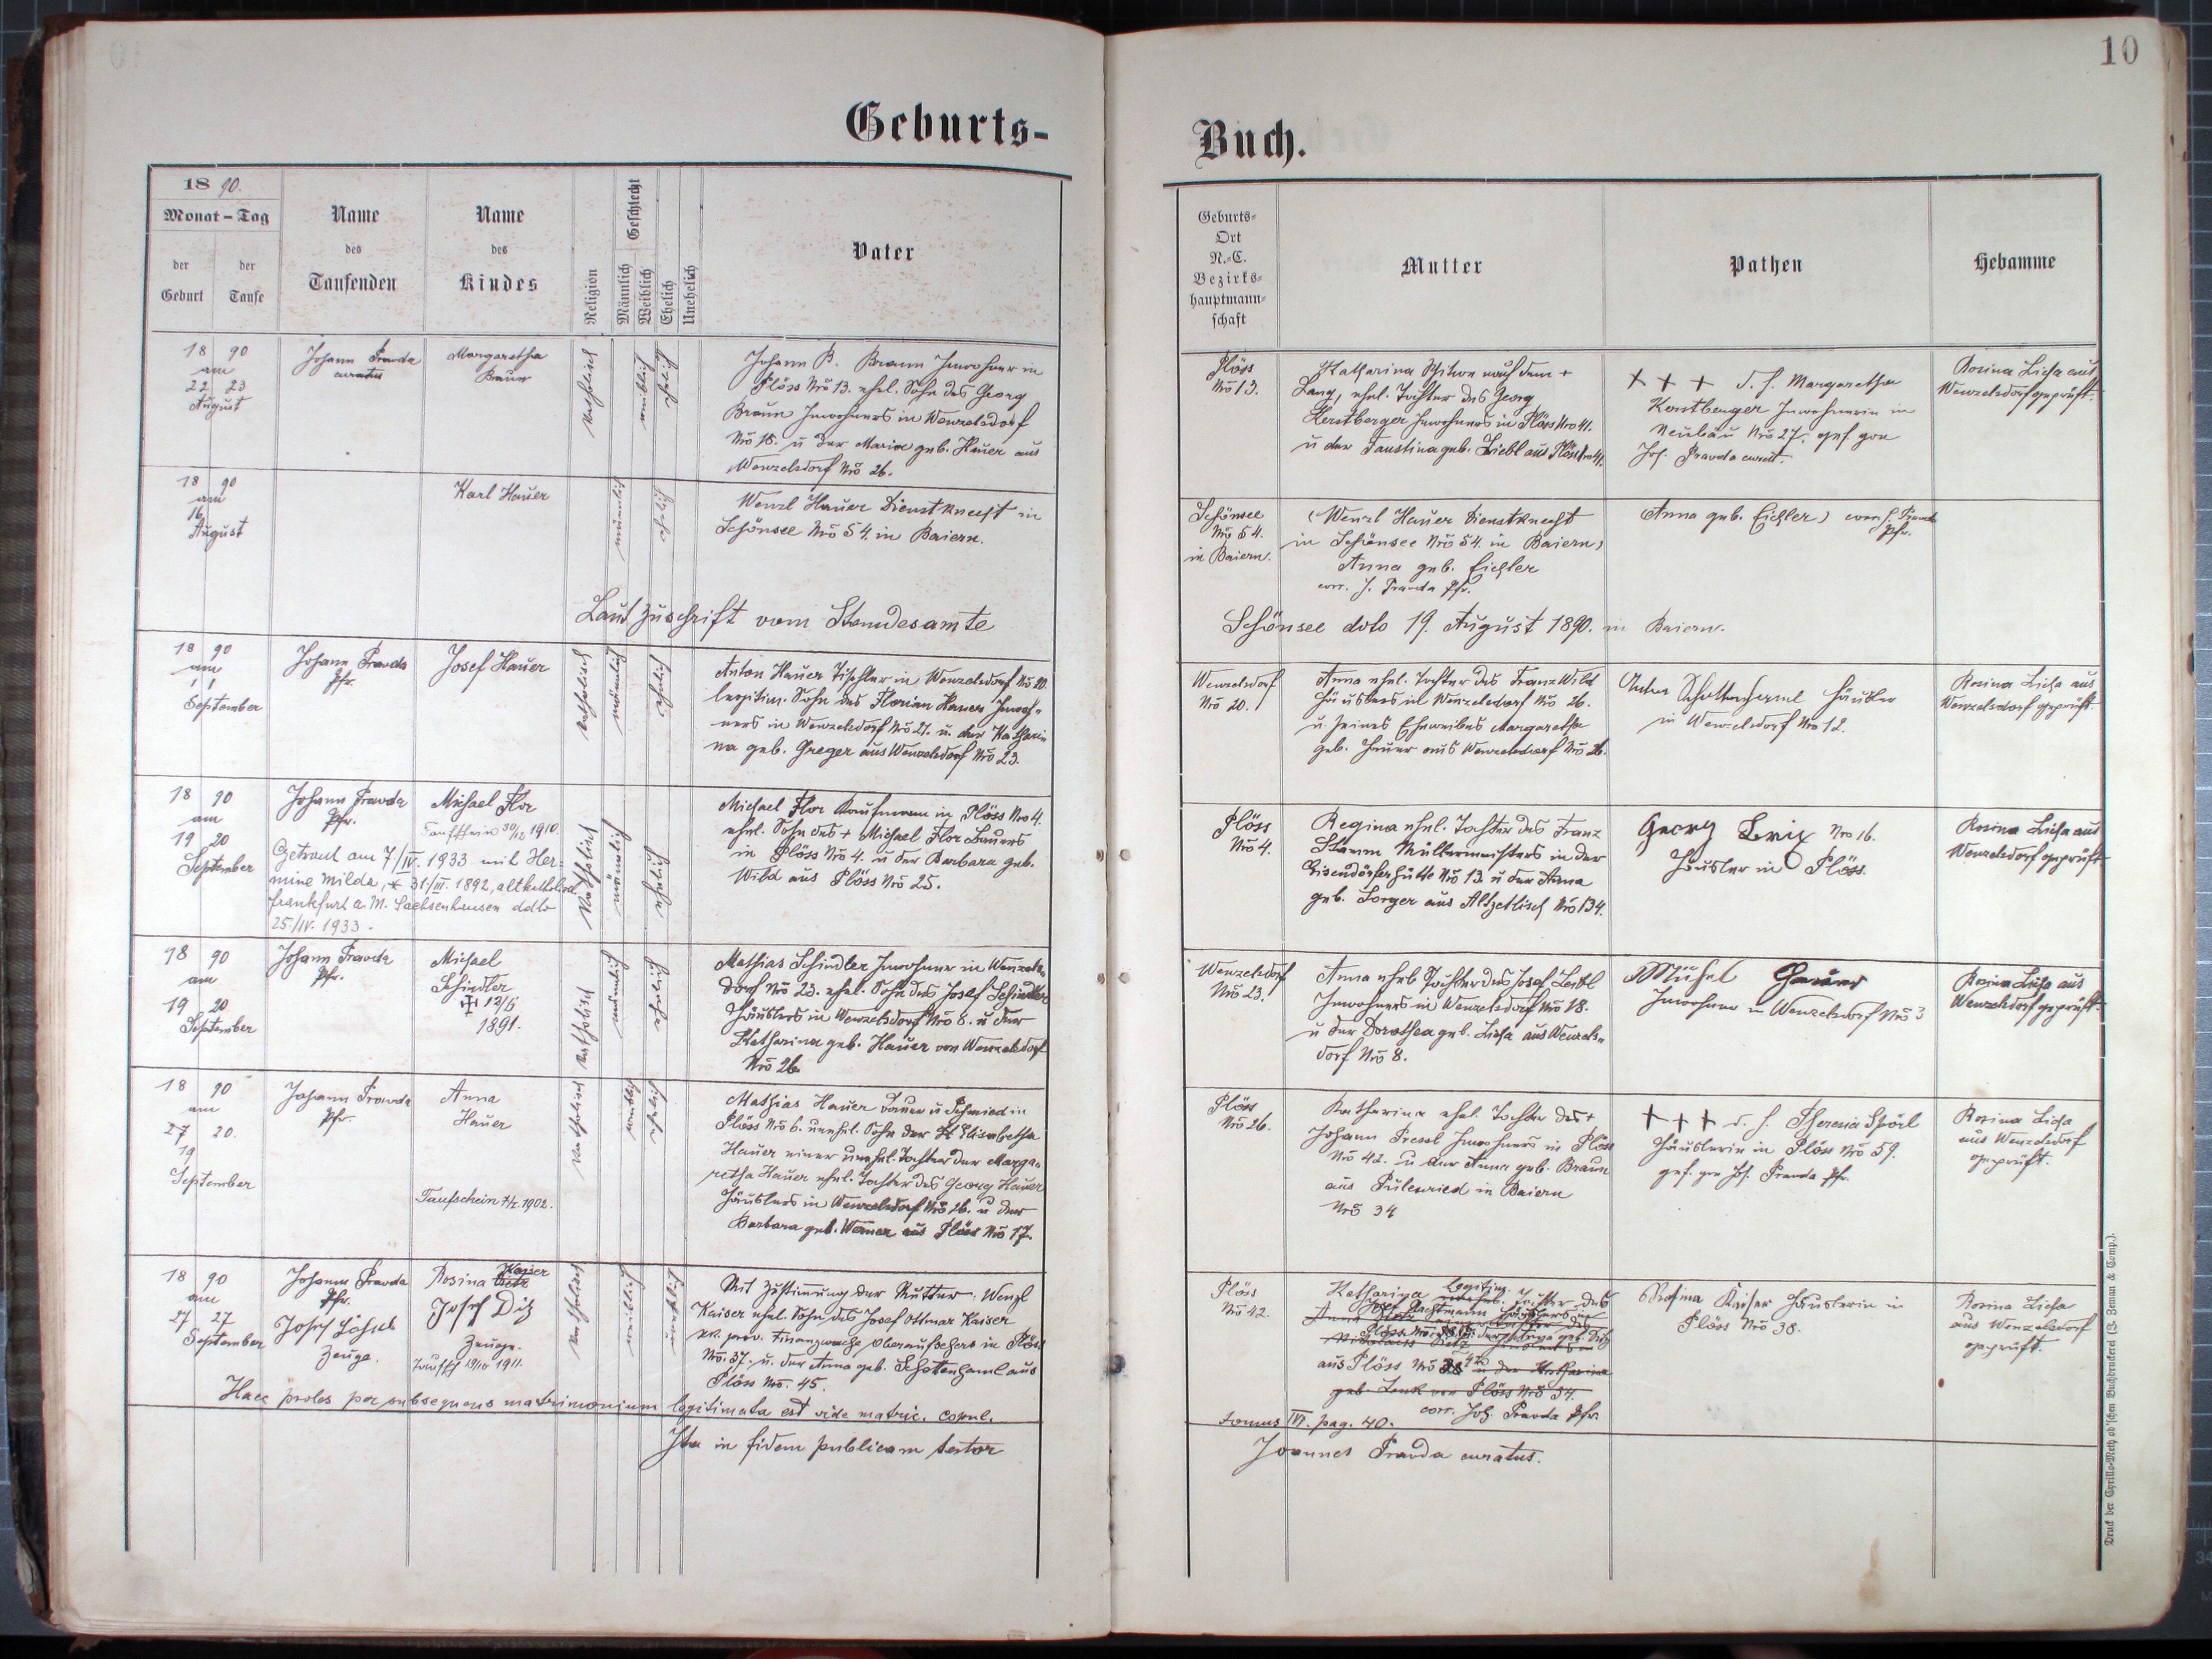 10
Geburts-
Buch.
18 90.
Monat – Tag
der Geburt
der Taufe
Name des Taufenden
Name des Kindes
Religion
Geschlecht
Männlich
Weiblich
Ehelich
Unehelich
Vater
Geburts-
Ort
N.-C.
Bezirks-
hauptmann-
schaft
Mutter
Pathen
Hebamme
18 90
am
22 23
August
Johann Pravda
curatus
Margaretha
Braun
katholisch
weiblich
ehelich
Johann B. Braun Inwohner in
Plöss Nrō 13. ehel. Sohn des Georg
Braun Inwohners in Wenzelsdorf
Nrō 18. u der Maria geb. Hauer aus
Wenzelsdorf Nrō 26.
Plöss
Nrō 13.
Katharina Witwe nach dem +
Lang, ehel. Tochter des Georg
Inwohners in Plöss Nro 41.
u der Faustina geb. Liebl aus Plöss Nro 41.
+ + + d. h. Margaretha
Inwohnerin in
Neubäu Nrō 27. gef. von
Joh. Pravda curat.
Rosina Licha aus
Wenzelsdorf geprüft.
18 90
am
16
August
Karl Hauer
männlich
ehelich
Wenzl Hauer Dienstknecht in
Schönsee Nrō 54. in Baiern.
Schönsee
Nrō 54.
in Baiern.
(Wenzl Hauer Dienstknecht
in Schönsee Nrō 54. in Baiern)
Anna geb. Eichler
corr. J. Pravda Pfr.
(Anna geb. Eichler) corr. J. Pravda
Pfr.
Laut Zuschrift vom Standesamte
Schönsee ddto 19. August 1890. in Baiern.
18 90
am
1 1
September
Johann Pravda
Pfr.
Josef Hauer
katholisch
männlich
ehelich
Anton Hauer Tischler in Wenzelsdorf No 20.
legitim. Sohn des Florian Hauer Inwoh-
ners in Wenzelsdorf Nrō 21. u. der Kathari-
na geb. Greger aus Wenzelsdorf Nrō 23.
Wenzelsdorf
Nrō 20.
Anna ehel. Tochter des Franz Wild
Häuslers in Wenzelsdorf Nrō 26.
u. seines Eheweibes Margaretha
geb. Hauer aus Wenzelsdorf Nrō 26.
Häusler
in Wenzelsdorf Nro 12.
Rosina Licha aus
Wenzelsdorf geprüft
18 90
am
19 20
September
Johann Pravda
Pfr.
Michael Flor
Taufschein 30/12 1910.
Getraut am 7/IV. 1933 mit Her-
mine Milde, * 31/III. 1892, altkatholisch
Frankfurt a. M. Sachsenhausen ddto
25./IV. 1933.
katholisch
männlich
ehelich
Michael Flor Kaufmann in Plöss Nro 4.
ehel. Sohn des + Michael Flor Bauers
in Plöss Nrō 4. u der Barbara geb.
Wild aus Plöss Nrō 25.
Plöss
Nrō 4.
Regina ehel. Tochter des Franz
Stamm Müllermeisters in der
Eisendorferhütte Nrō 13. u der Anna
geb. Sorger aus Altzetlisch Nrō 134.
Georg Nro 16.
Häusler in Plöss.
Rosina Licha aus
Wenzelsdorf geprüft
18 90
am
19 20
September
Johann Pravda
Pfr.
Michael
Schindler
+ 12/6
1891.
katholisch
männlich
ehelich
Mathias Schindler Inwohner in Wenzels-
dorf Nrō 23. ehel. Sohn des Josef Schindler
Häuslers in Wenzelsdorf Nrō 8. u der
Katharina geb. Hauer von Wenzelsdorf
Nrō 26.
Wenzelsdorf
Nrō 23.
Anna ehel. Tochter des Josef
Inwohners in Wenzelsdorf Nrō 18.
u der Dorothea geb. Licha aus Wenzels-
dorf Nrō 8.
Michel Hauer
Inwohner in Wenzelsdorf Nrō 3
Rosina Licha aus
Wenzelsdorf geprüft.
18 90
am
27 20.
19
September
Johann Pravda
Pfr.
Anna
Hauer
Taufschein 7/2. 1902.
katholisch
weiblich
ehelich
Mathias Hauer Bauer u Schmied in
Plöss Nrō 6. unehel. Sohn der Elisabetha
Hauer einer unehel. Tochter der Marga-
retha Hauer ehel. Tochter des Georg Hauer
Häuslers in Wenzelsdorf Nrō 26. u der
Barbara geb. Werner aus Plöss Nrō 17.
Plöss
Nrō 26.
Katharina ehel. Tochter des +
Johann Pressl Inwohners in Plöss
Nrō 42. u der Anna geb. Braun
aus Pulenried in Baiern
Nrō 34
+ + + d. h. Theresia Spörl
Häuslerin in Plöss Nrō 59.
gef. von Joh. Pravda Pfr.
Rosina Licha
aus Wenzelsdorf
geprüft.
18 90
am
27 27
September
Johann Pravda
Pfr.
Josef
Zeuge.
Rosina Kaiser
Josef Ditz
Zeuge.
1911.
katholisch
weiblich
unehelich
Mit Zustimmung der Mutter: Wenzl
Kaiser ehel. Sohn des Josef Ottmar Kaiser
kk. prov. Finanzwache Oberaufsehers in Plöss
Nrō. 37. u. der Anna geb. Schottenhaml aus
Plöss Nrō. 45.
Plöss
Nrō 42.
Katharina legitim. Tochter des
aus Plöss Nrō 42 u der Katharina
geb. Lenk von Plöss Nrō 34.
corr. Joh. Pravda Pfr.
Rosina Kaiser Häuslerin in
Plöss Nrō 38.
Rosina Licha
aus Wenzelsdorf
geprüft.
Haec proles per subsequens matrimonium legitimata est vide matric. copul.
tomus IV. pag. 40.
Ita in fidem publicam testor
Joannes Pravda curatus.
Druck der Cyrillo-Method'schen Buchdruckerei (J. Zeman & Comp.).